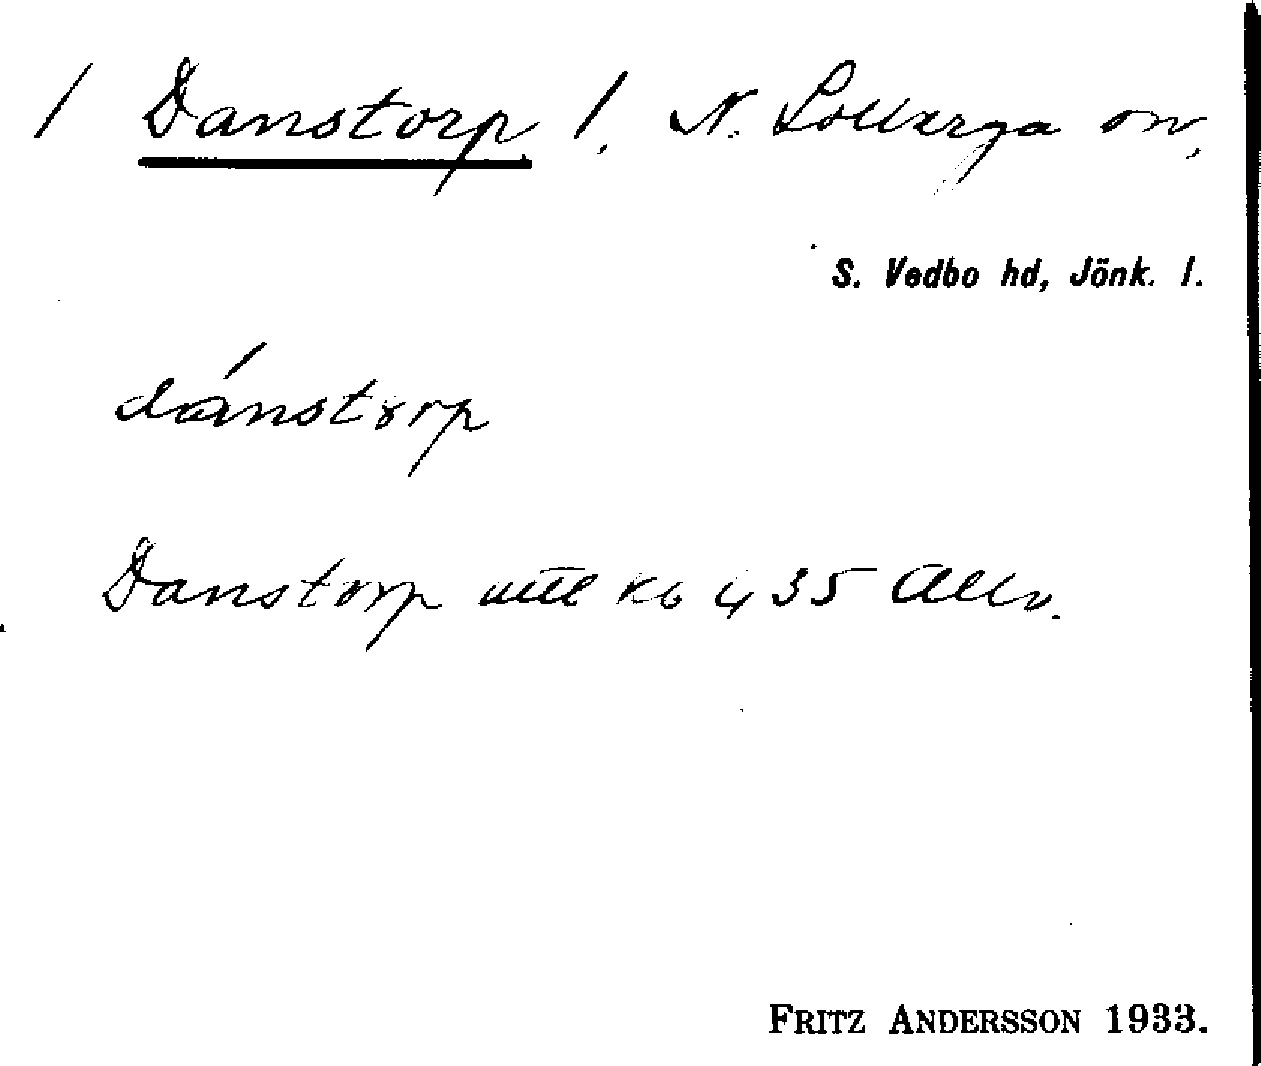 / Danstorp /. N. Solberga sn,
S. Vedbo hd, Jönk. l.
dánstorp
Danstorp utl kb 435 Allv.
FRITZ ANDERSSON 1933.